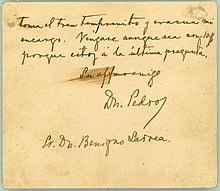 tome el tren tempranito y evacua mi
encargo. Vengase aunque sea con 10$
porque estoy á la última pregunta.
Su affmo amigo
Dn. Pedros
Sr. Dn. Benigno Larrea.